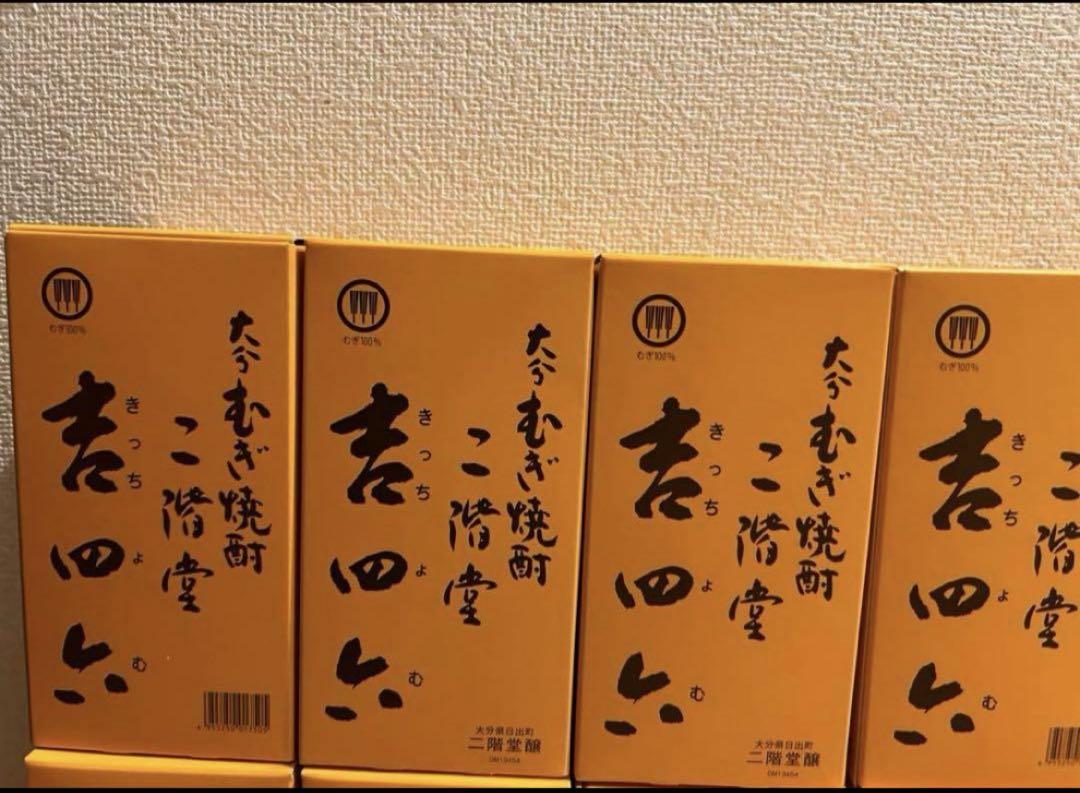 むぎ100%
大分むぎ焼酎
二階堂
吉四六
きっちょむ
むぎ100%
大分むぎ焼酎
二階堂
吉四六
きっちょむ
大分県日出町
二階堂醸
むぎ100%
大分むぎ焼酎
二階堂
吉四六
きっちょむ
大分県日出町
二階堂醸
むぎ100%
二階堂
吉四六
きっちょむ